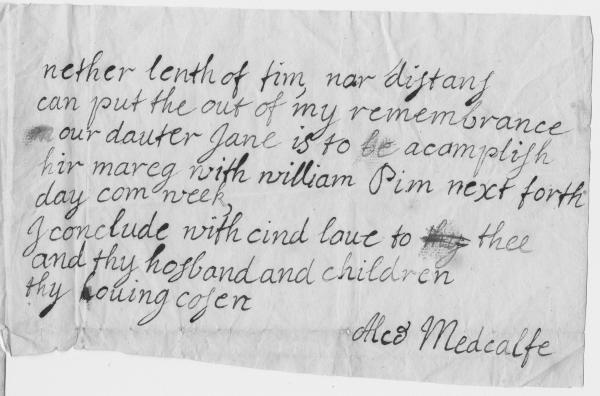 nether lenth of tim, nar distans
can put the out of my remembrance
our dauter Jane is to be acomplish
hir mareg with william Pim next forth
day com week,
I conclude with cind laue to thee
and thy hosband and children
thy Louing cosen
Medcalfe